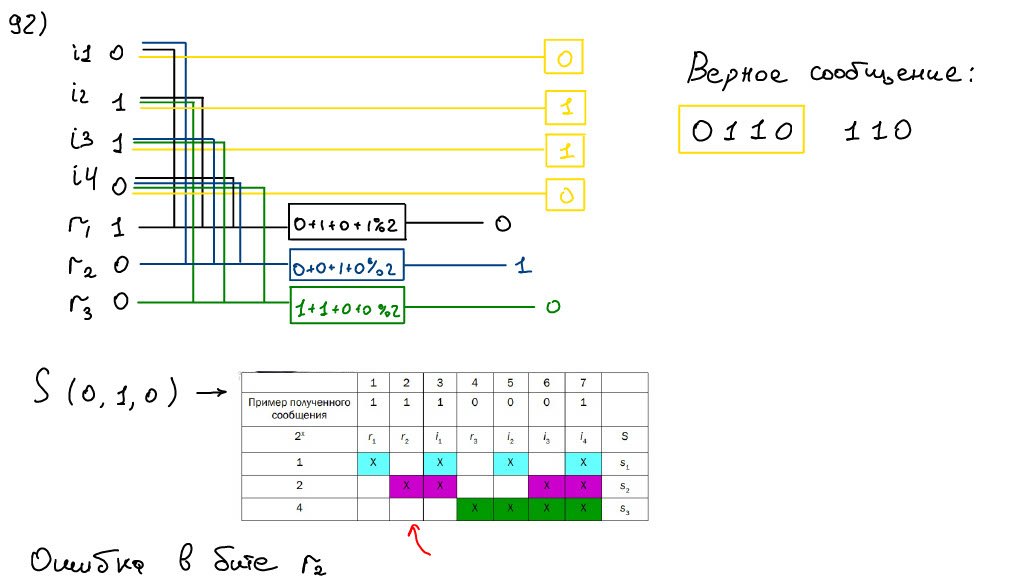 92)
i1 0 0
i2 1 1
i3 1 1
i4 0 0
r₁ 1 0+1+0+1%2 0
r₂ 0 0+0+1+0%2 1
r₃ 0 1+1+0+0%2 0
Верное сообщение:
0110 110
S (0, 1, 0) →
1 2 3 4 5 6 7
Пример полученного сообщения 1 1 1 0 0 0 1
2ˣ r₁ r₂ i₁ r₃ i₂ i₃ i₄ S
1 X X X X s₁
2 X X X X s₂
4 X X X X s₃
Ошибка в бите r₂